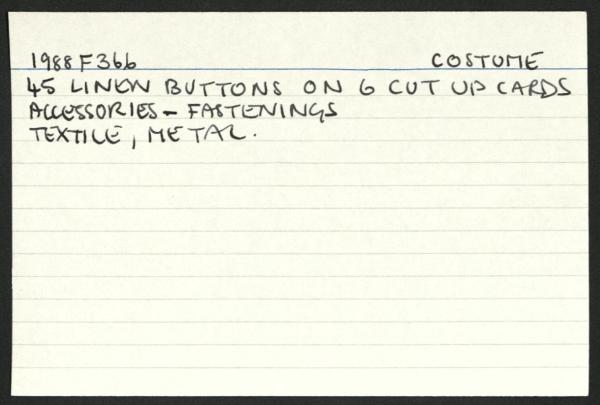 1988 F366 COSTUME
45 LINEN BUTTONS ON 6 CUT UP CARDS
ACCESSORIES - FASTENINGS
TEXTILE, METAL.